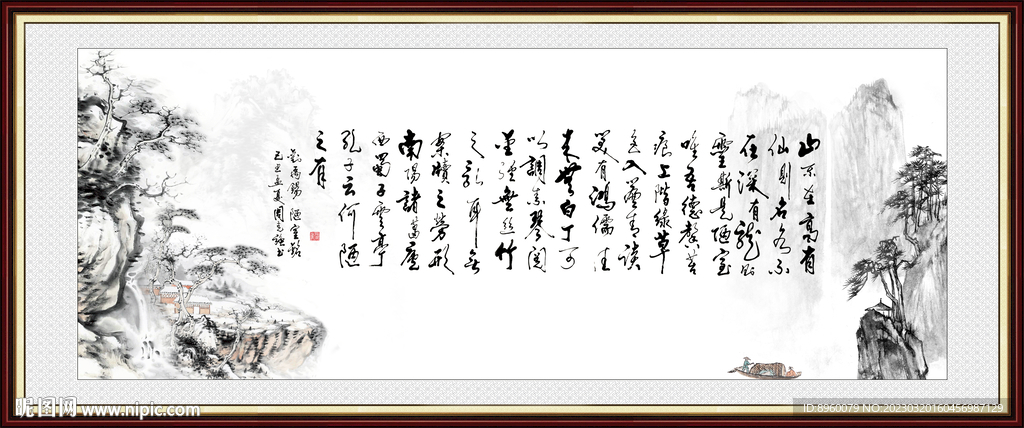 山不在高有
仙則名水不
在深有龍則
靈斯是陋室
唯吾德馨苔
痕上階綠草
色入簾青談
笑有鴻儒往
來無白丁可
以調素琴閱
金經無絲竹
之亂耳無
案牘之勞形
南陽諸葛廬
西蜀子雲亭
孔子云何陋
之有
劉禹錫 陋室銘
己巳孟夏周書
昵图网 www.nipic.com
ID:8960079 NO:20230320160456987129